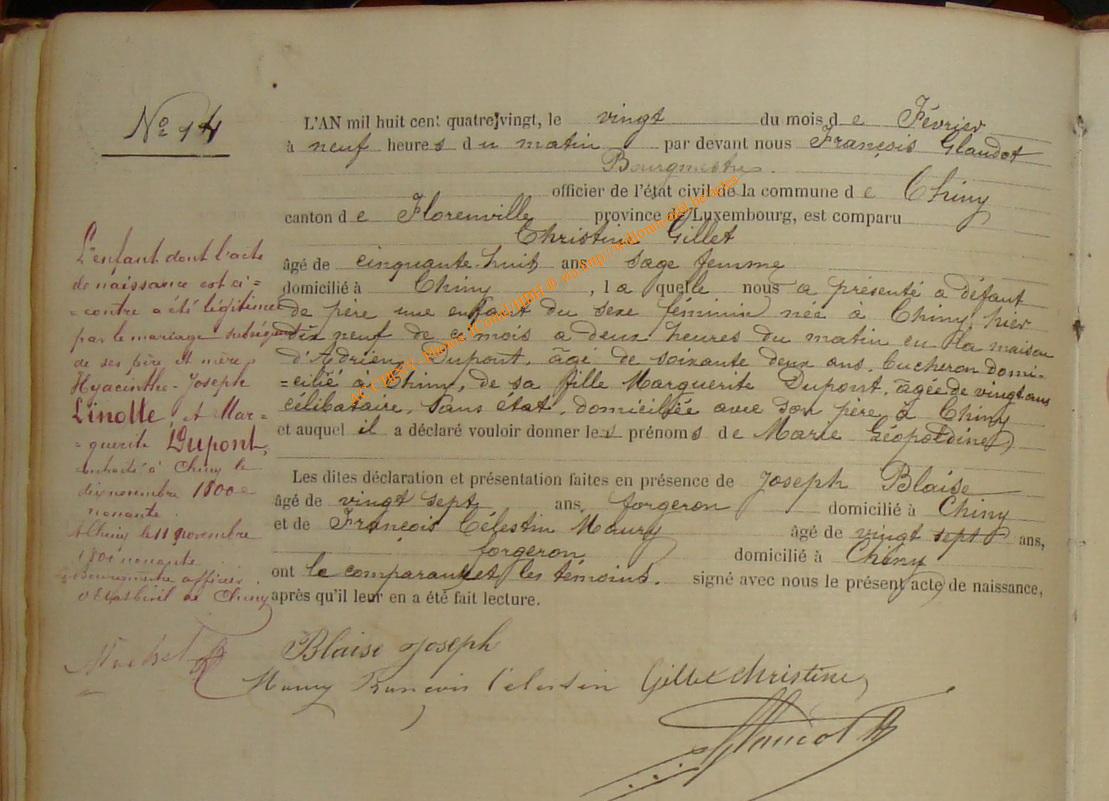 No 14
L'AN mil huit cent quatre-vingt, le vingt du mois d e Février
à neuf heures du matin par devant nous François Glaudot
Bourgmestre
officier de l'état civil de la commune d e Chiny
canton d e Florenville province de Luxembourg, est comparu
Christine Gillet
âgé de cinquante-huit ans sage femme
domicilié à Chiny, la quelle nous a présenté à défaut
de père, une enfant du sexe féminin née à Chiny, hier
dix neuf de ce mois à deux heures du matin en la maison
d'Adrien Dupont, âgé de soixante deux ans, bucheron domi-
=cilié à Chiny, de sa fille Marguerite Dupont, âgée de vingt ans
célibataire, sans état, domiciliée avec son père à Chiny
et auquel il a déclaré vouloir donner les prénoms de Marie Léopoldine
Les dites déclaration et présentation faites en présence de Joseph Blaise
âgé de vingt sept ans forgeron domicilié à Chiny
et de François Célestin Maury âgé de vingt sept ans,
forgeron domicilié à Chiny
ont le comparant et les témoins signé avec nous le présent acte de naissance,
après qu'il leur en a été fait lecture.
L'enfant dont l'acte
de naissance est ci=
=contre a été légitimée
par le mariage subséquent
de ses père et mère
Hyacinthe-Joseph
Linotte, et Mar=
=guerite Dupont,
à Chiny le
dix novembre 1800
nonante
A Chiny le 11 novembre
1800 nonante
Bourgmestre officier
d'Etat Civil de Chiny
Blaise Joseph
Maury François Célestin Gillet Christine
Glaudot